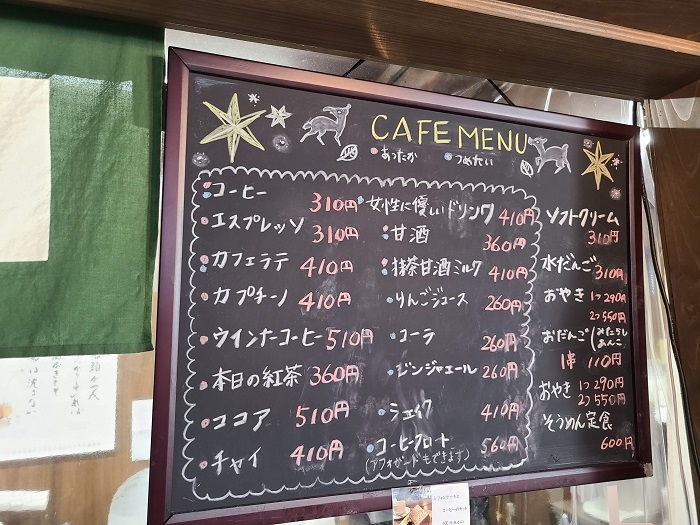 CAFE MENU
あったか つめたい
コーヒー 310円
エスプレッソ 310円
カフェラテ 410円
カプチーノ 410円
ウインナーコーヒー 510円
本日の紅茶 360円
ココア 510円
チャイ 410円
女性に優しいドリンク 410円
甘酒 360円
抹茶甘酒ミルク 410円
りんごジュース 260円
コーラ 260円
ジンジャエール 260円
シェイク 410円
コーヒーフロート 560円
(アフォガードもできます)
ソフトクリーム
310円
水だんご 310円
おやき 1つ 290円
2つ 550円
おだんご (みたらし
あんこ
1串 110円
おやき 1つ 290円
2つ 550円
そうめん定食
600円